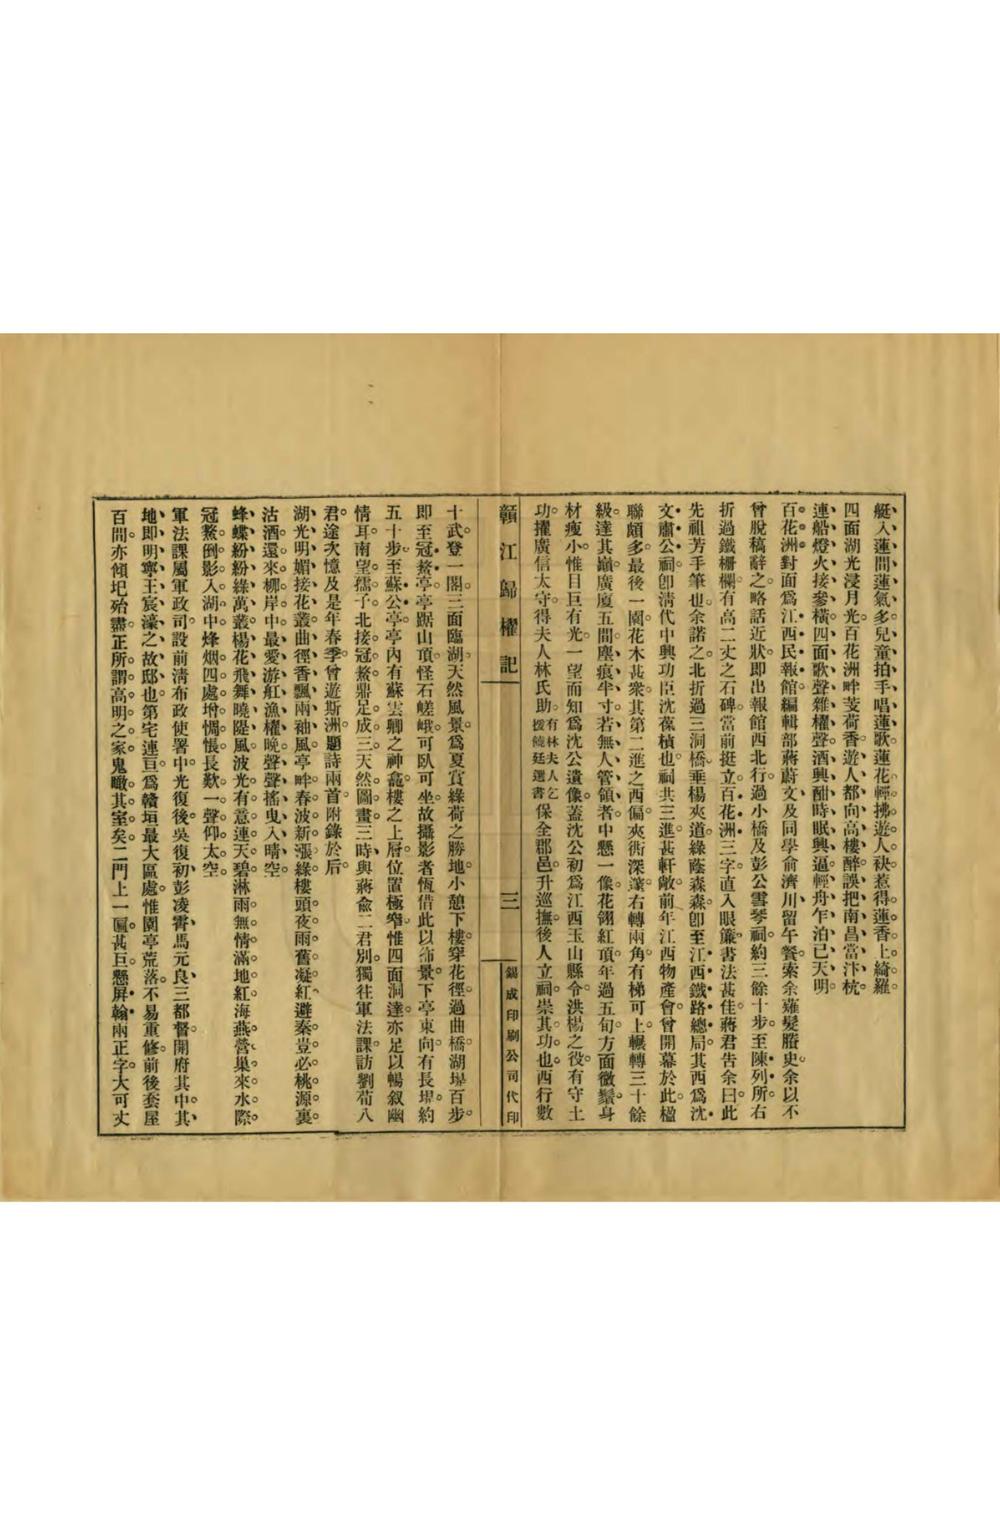 艇入蓮間蓮氣多兒童拍手唱蓮歌蓮花輕拂遊人袂惹得蓮香上綺羅
四面湖光浸月光百花洲畔芰荷香遊人都向高樓醉誤把南昌當汴杭
連船燈火接參橫四面歌聲雜櫂聲酒興酣時眠興逼輕舟乍泊已天明
百花洲對面爲江西民報館編輯部蔣蔚文及同學俞濟川留午餐索余雍髮賸史余以不
曾脫稿辭之略話近狀即出報館西北行過小橋及彭公雪琴祠約三餘十步至陳列所右
折過鐵柵欄有高二丈之石碑當前挺立百花洲三字直入眼簾書法甚佳蔣君告余曰此
先祖芳手筆也余諾之北折過三洞橋垂楊夾道綠蔭森森卽至江西鐵路總局其西爲沈
文肅公祠卽淸代中興功臣沈葆楨也祠共三進甚軒敞前年江西物產會曾開幕於此楹
聯頗多最後一園花木甚衆其第二進之西偏夾衖深邃右轉兩角有梯可上輾轉三十餘
級達其巔廣廈五間塵痕半寸若無人管領者中懸一像花翎紅頂年過五旬方面微鬚身
材瘦小惟目巨有光一望而知爲沈公遺像蓋沈公初爲江西玉山縣令洪楊之役有守土
功擢廣信太守得夫人林氏助有林夫人乞援饒廷選書保全郡邑升巡撫後人立祠崇其功也西行數
贛江歸櫂記
三
錫成印刷公司代印
十武登一閣三面臨湖天然風景爲夏賞綠荷之勝地小憩下樓穿花徑過曲橋湖堤百步
即至冠鰲亭亭踞山頂怪石嵯峨可臥可坐故攝影者恆借此以佈景下亭東向有長堤約
五十步至蘇公亭亭內有蘇雲卿之神龕樓之上層位置極窄惟四面洞達亦足以暢叙幽
情耳南望孺子北接冠鰲鼎足成三天然圖畫三時與蔣俞二君別獨往軍法課訪劉荀八
君途次憶及是年春季曾遊斯洲題詩兩首附錄於后
湖光明媚接花叢曲徑香飄兩袖風亭畔春波新漲綠樓頭夜雨舊凝紅避秦豈必桃源裏
沽酒還來柳岸中最愛游舡漁櫂晚聲聲搖曳入晴空
蜂蝶紛紛綠萬叢楊花飛舞曉隄風波光有意連天碧淋雨無情滿地紅海燕營巢來水際
冠鰲倒影入湖中烽烟四處增惆悵長歎一聲仰太空
軍法課屬軍政司設前淸布政使署中光復後吳復初彭凌霄馬元良三都督開府其中其
地即明寧王宸濠之故邸也第宅連亘爲贛垣最大區處惟園亭荒落不易重修前後套屋
百間亦傾圮殆盡正所謂高明之家鬼瞰其室矣二門上一匾甚巨懸屏翰兩正字大可丈